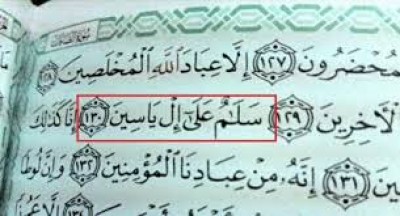 سُورَةُ الصَّافَّاتِ
لَمُحْضَرُونَ ١٢٧ إِلَّا عِبَادَ اللَّهِ الْمُخْلَصِينَ ١٢٨
الْآخِرِينَ ١٢٩ سَلَامٌ عَلَىٰ إِلْ يَاسِينَ ١٣٠ إِنَّا كَذَٰلِكَ
١٣١ إِنَّهُ مِنْ عِبَادِنَا الْمُؤْمِنِينَ ١٣٢ وَإِنَّ لُوطًا